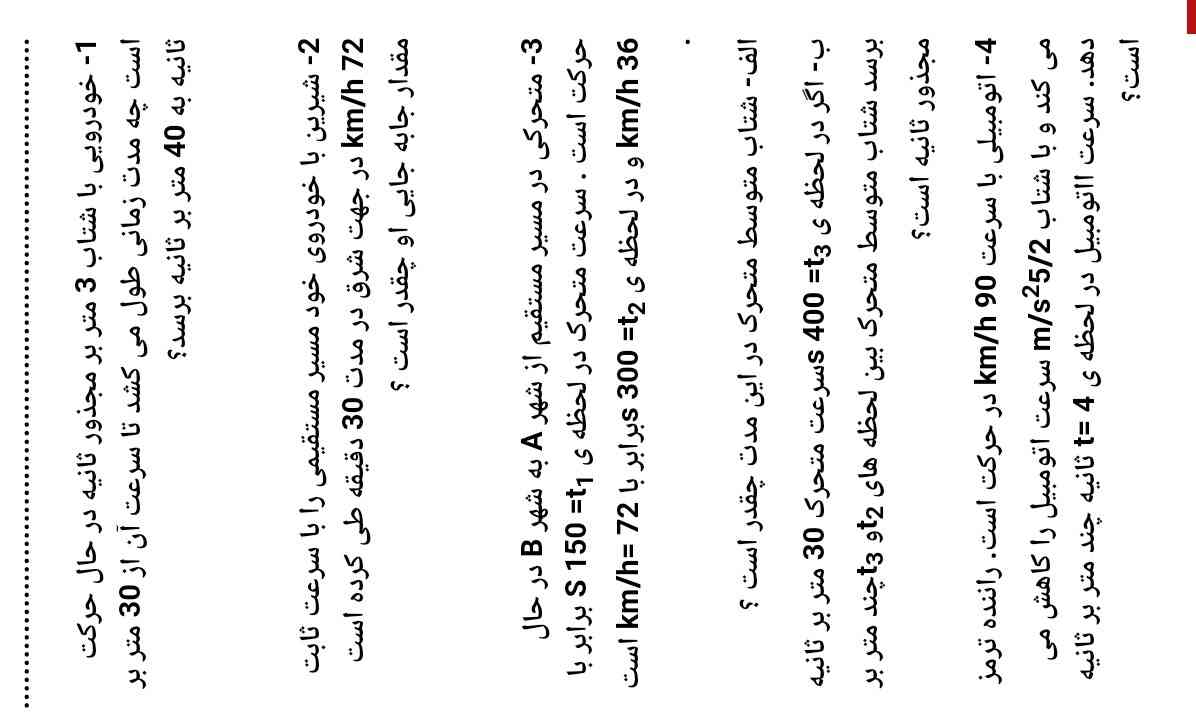 1- خودرویی با شتاب 3 متر بر مجذور ثانیه در حال حرکت
است چه مدت زمانی طول می کشد تا سرعت آن از 30 متر بر
ثانیه به 40 متر بر ثانیه برسد؟
2- شیرین با خودروی خود مسیر مستقیمی را با سرعت ثابت
72 km/h در جهت شرق در مدت 30 دقیقه طی کرده است
مقدار جابه جایی او چقدر است ؟
3- متحرکی در مسیر مستقیم از شهر A به شهر B در حال
حرکت است . سرعت متحرک در لحظه ی t₁= 150 S برابر با
36 km/h و در لحظه ی t₂= 300 sبرابر با 72 =km/h است
.
الف- شتاب متوسط متحرک در این مدت چقدر است ؟
ب- اگر در لحظه ی t₃= 400 sسرعت متحرک 30 متر بر ثانیه
برسد شتاب متوسط متحرک بین لحظه های t₂و t₃چند متر بر
مجذور ثانیه است؟
4- اتومبیلی با سرعت 90 km/h در حرکت است. راننده ترمز
می کند و با شتاب 5/2m/s² سرعت اتومبیل را کاهش می
دهد. سرعت ااتومبیل در لحظه ی t= 4 ثانیه چند متر بر ثانیه
است؟